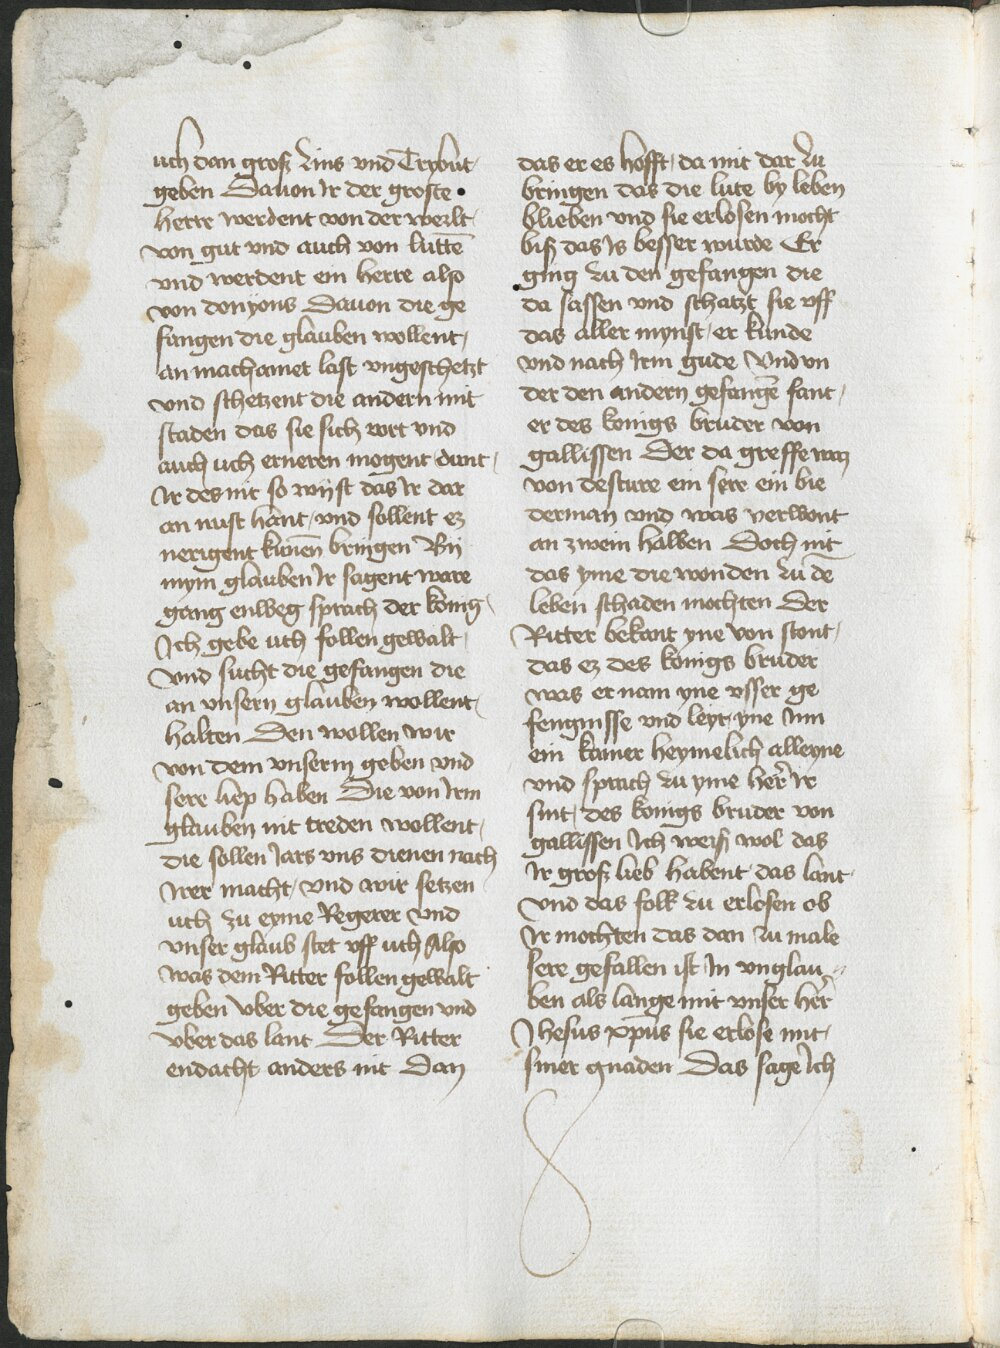 uch dan groß zins vnd Trybut
geben Dauon Ir der groste
herre werdent von der werlt
von gut vnd auch von lutten̄
vnd werdent ein herre also
von donyons Dauon die ge
fangen die glauben wollent
an machamet last vngeschetzt
vnd schetzent die andern mit
staden das sie sich vort vnd
auch uch erneren mogent dunt
Ir des nit so wyst das Ir dar
an nust hant vnd sollent ez
nerigent kūnen bringen By
mym glauben Ir sagent ware
gang enweg sprach der konig
Ich gebe uch follen gewalt
vnd sucht die gefangen die
an vnsern glauben wollent
halten Den wollen wir
von dem vnserm geben vnd
sere liep haben Die von Irm
glauben nit treden wollent
die sollen Jars vns dienen nach
Irer macht vnd wir setzen
uch zu eyme Regerer vnd
vnser glaub stet vff uch Also
was dem Ritter follen gewalt
geben vber die gefangen vnd
vber das lant Der Ritter
endacht anders nit Dan
das er es hofft da mit dar zu
bringen das die lute by leben
blieben vnd sie erlosen mocht
biß das Is besser wurde Er
ging zu den gefangen die
da sassen vnd schatzt sie vff
das aller mynst er kunde
vnd nach Irm gude Vnd vn
der den andern gefangē fant
er des konigs bruder von
gallissen Der da greffe waz
von desture ein sere ein bie
derman vnd was verwont
an zwein halben Doch nit
das yme die wonden zu dē
leben schaden mochten Der
Ritter bekant yne von stont
das ez des konigs bruder
was er nam yne vsser ge
fengnisse vnd leyt yne Inn
ein kamer heymelich alleyne
vnd sprach zu yme her̄ Ir
sint des konigs bruder von
gallissen Ich weiß wol das
Ir groß lieb habent das lant
vnd das folk zu erlosen ob
Ir mochten das dan zu male
sere gefallen ist In vnglau
ben als lange mit vnser her̄
Jhesus xp̄us sie erlose mit
siner gnaden Das sage Ich